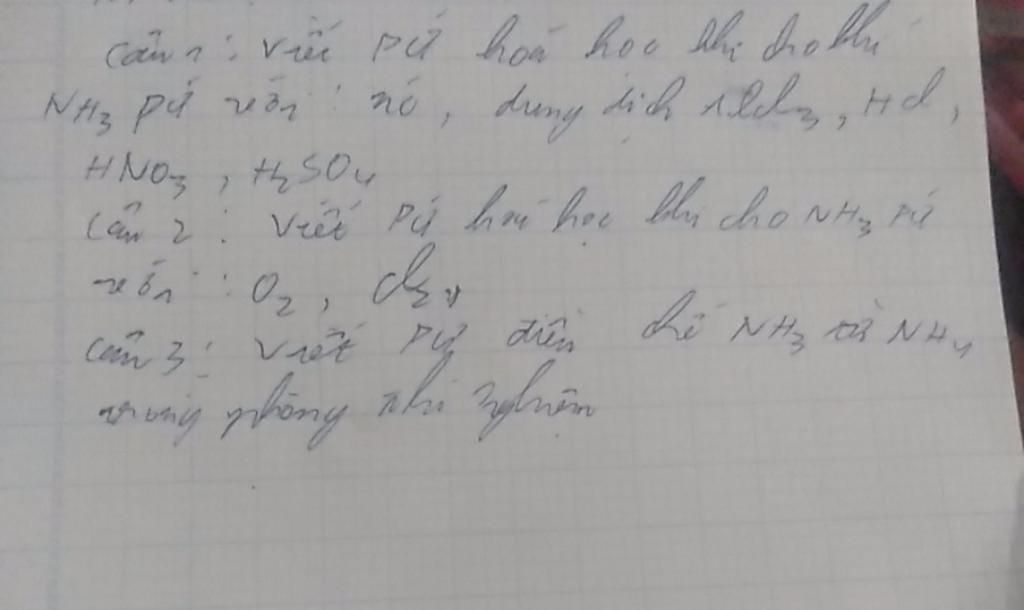 Câu 1 : Viết PƯ hoá học khi cho khí
NH3 pứ với : nó , dung dịch AlCl3 , HCl ,
HNO3 , H2SO4
Câu 2 : Viết PƯ hoá học khi cho NH3 pứ
với : O2 , Cl2
Câu 3 : Viết PƯ điều chế NH3 từ NH4
trong phòng thí nghiệm